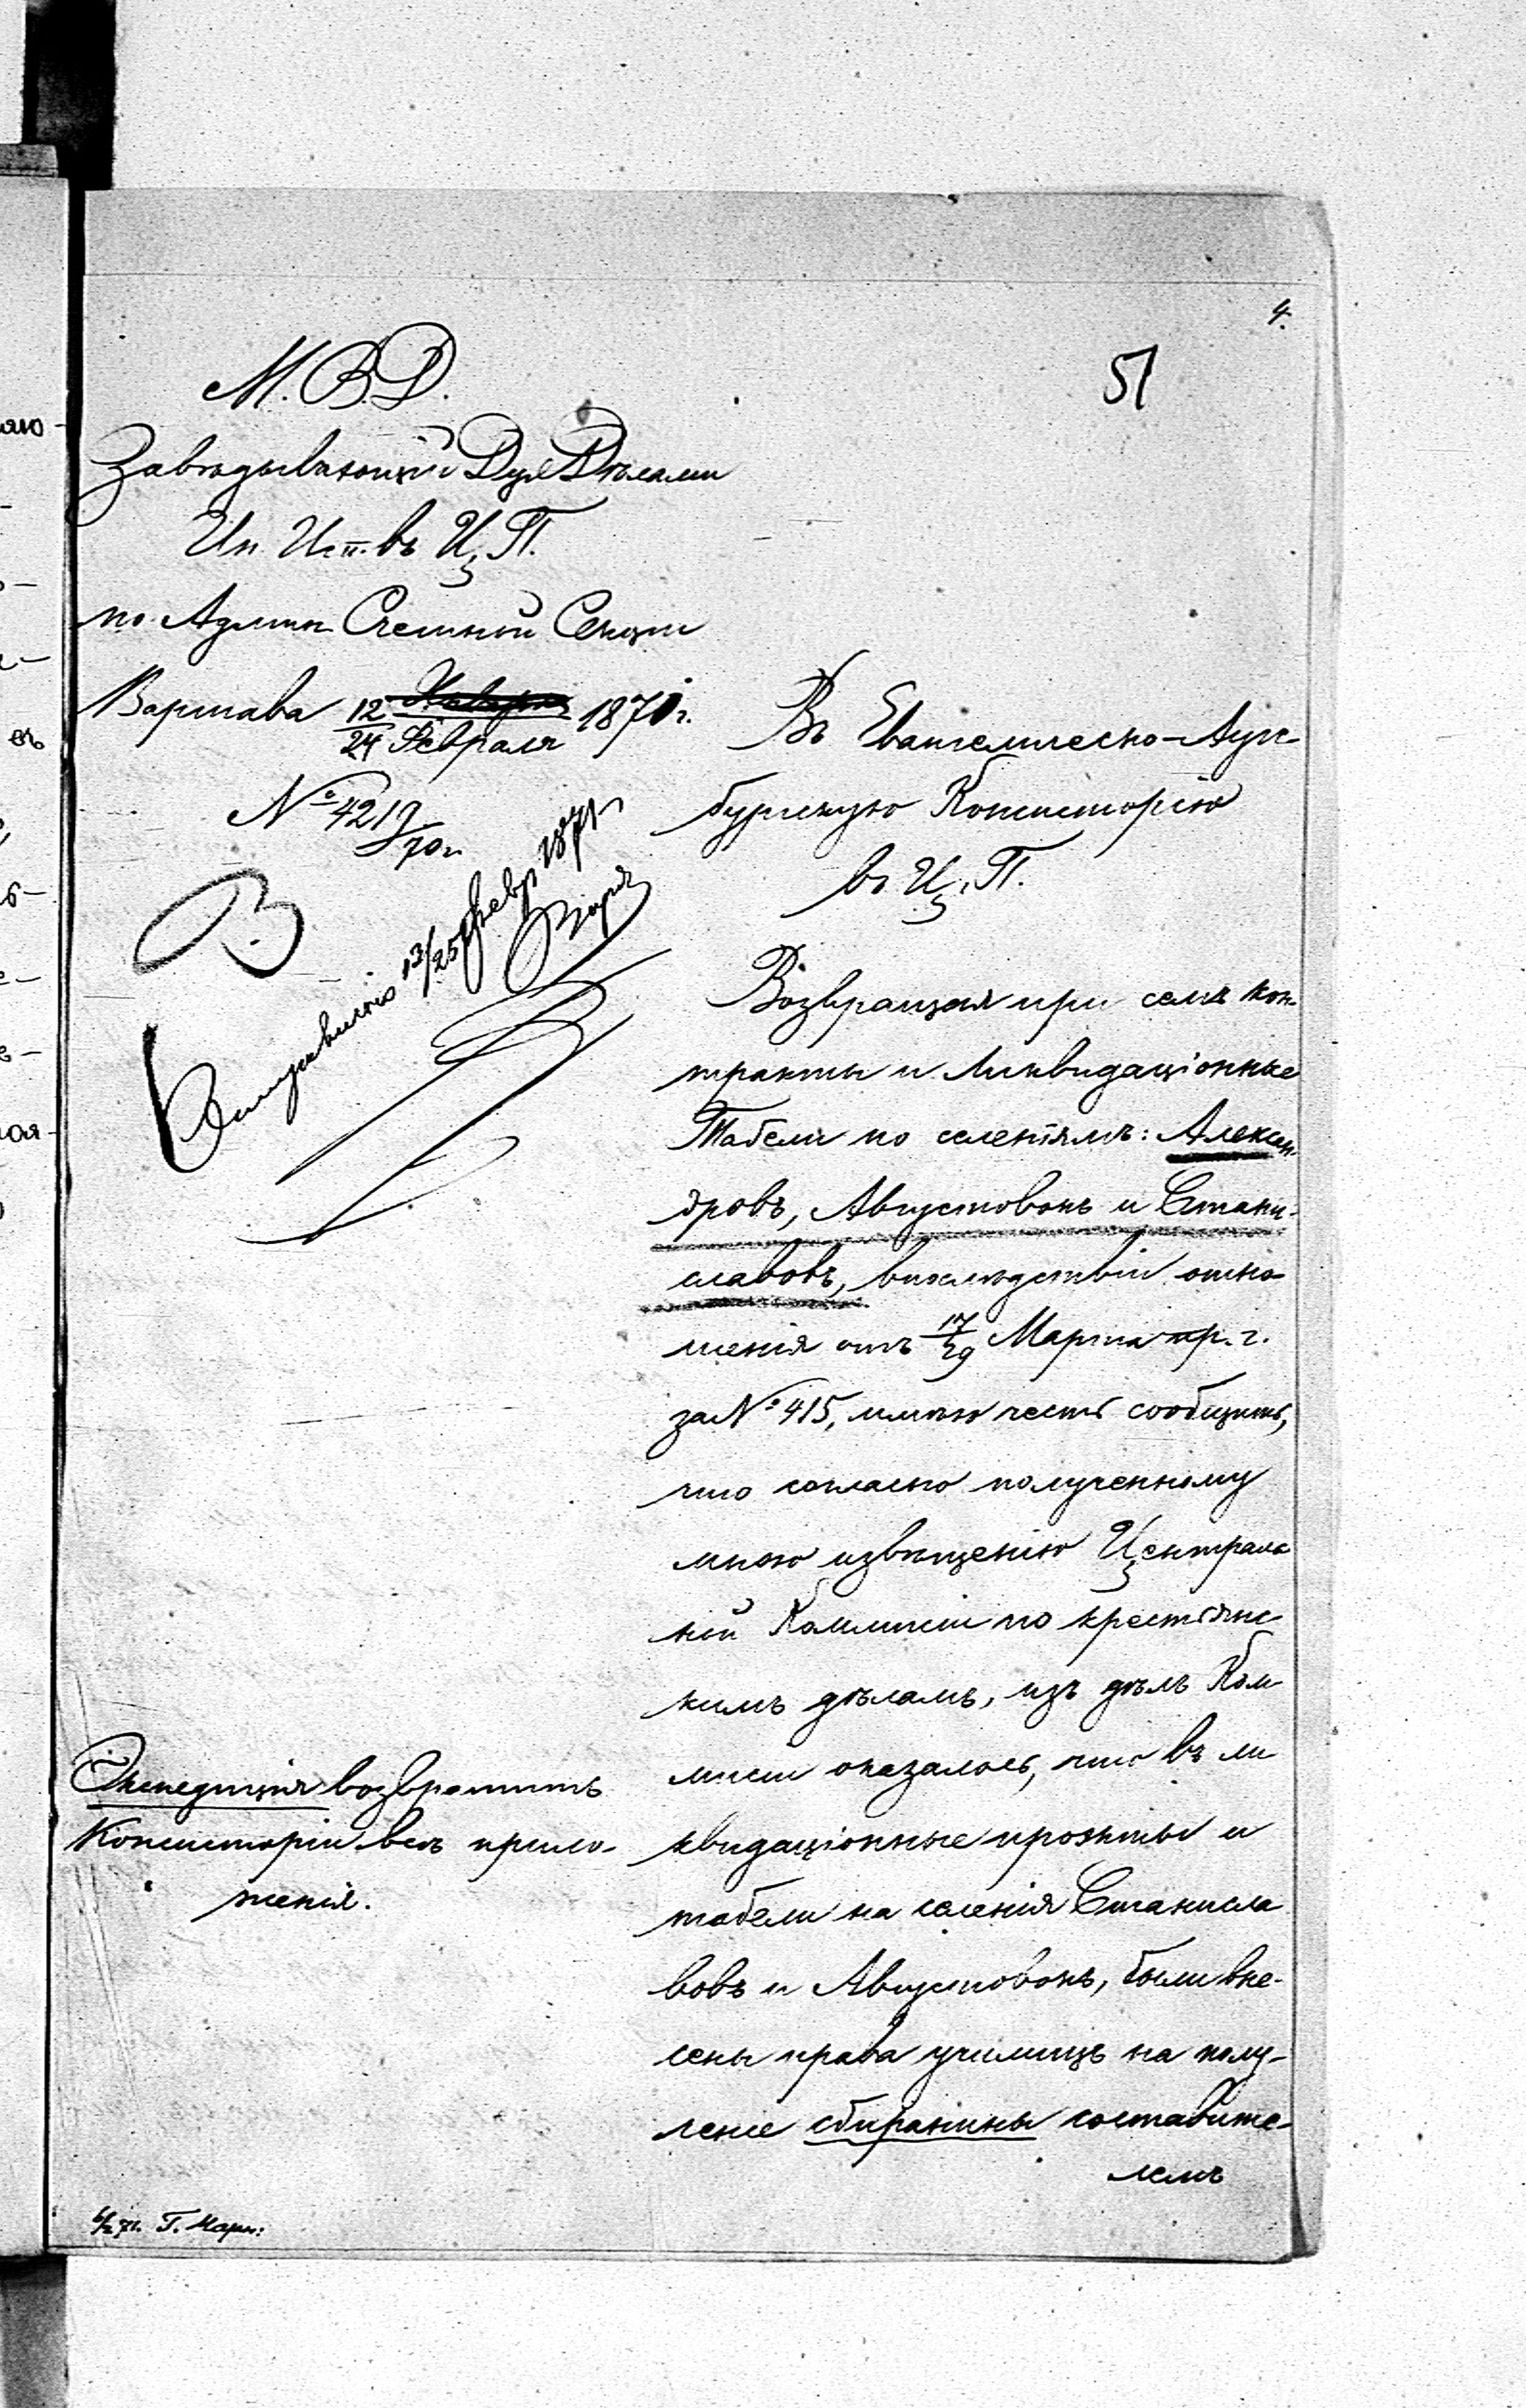 4.
51
М. В. Д.
Завѣдывающій Дух Дѣлами
Ин. Исп. въ Ц. П.
по Админ Счетной Секціи
Варшава 12/24 Февраля 1871 г.
№ 4219/70 г.
13/25 февр 1871 г
Въ Евангелическо-Аугс-
бургскую Консисторію
въ Ц. П.
Возвращая при семъ кон-
тракты и Ликвидаціонные
Табели по селеніямъ: Алексан-
дровъ, Августовекъ и Стани-
славовъ, впослѣдствіи отно-
шенія отъ 17/29 Марта пр. г.
за № 415, имѣю честь сообщить,
что согласно полученному
мною извѣщенію Централь
ной Коммисіи по крестьянс
кимъ дѣламъ, изъ дѣлъ Ком
мисіи оказалось, что въ ли
квидаціонные проэкты и
табели на селенія Станисла
вовъ и Августовекъ, были вне-
сены права училищъ на полу-
ченіе сбиранины составите-
лемъ
Экспедиція возвратитъ
Консисторіи всѣ прило-
женія.
71. Г. Марк: